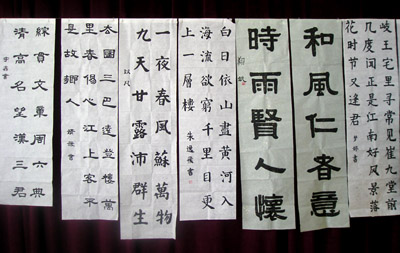 岐王宅里寻常见崔九堂前
几度闻正是江南好风景落
花时节又逢君
和風仁者意
時雨賢人懷
白日依山盡黄河入
海流欲窮千里目更
上一層楼
一夜春風蘇萬物
九天甘露沛群生
去國三巴遠登樓萬
里春傷心江上客不
是故鄉人
貫文周六典
清高名望漢三君